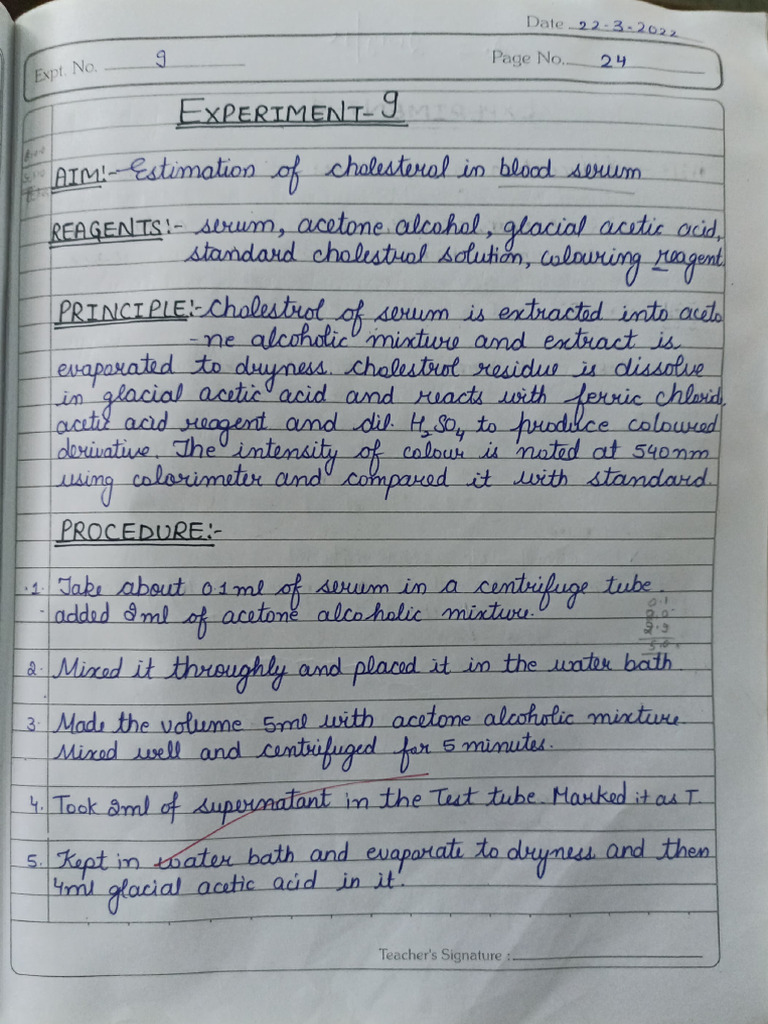 Date 22-3-2022
Expt. No. 9 Page No. 24
EXPERIMENT-9
AIM:- Estimation of cholesterol in blood serum
REAGENTS:- serum, acetone alcohol, glacial acetic acid,
standard cholestrol solution, colouring reagent.
PRINCIPLE:- Cholestrol of serum is extracted into aceto
-ne alcoholic mixture and extract is
evaporated to dryness. Cholestrol residue is dissolve
in glacial acetic acid and reacts with ferric chlorid,
acetic acid reagent and dil. H2SO4 to produce coloured
derivative. The intensity of colour is noted at 540nm
using colorimeter and compared it with standard.
PROCEDURE:-
1. Take about 0.1ml of serum in a centrifuge tube.
added 2ml of acetone alcoholic mixture.
0.1
2.9
5.0
2. Mixed it throughly and placed it in the water bath
3. Made the volume 5ml with acetone alcoholic mixture.
Mixed well and centrifuged for 5 minutes.
4. Took 2ml of supernatant in the Test tube. Marked it as T.
5. Kept in water bath and evaporate to dryness and then
4ml glacial acetic acid in it.
Teacher's Signature :